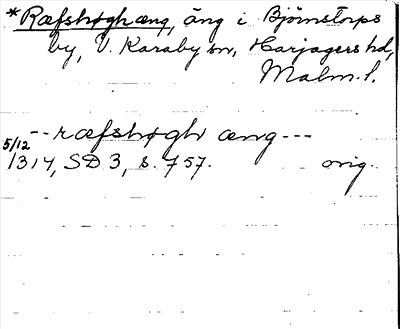 *Ræfshøghæng, äng i Björnstorps
by, V. Karaby sn, Harjagers hd,
Malm. l.
--ræfshøgh æng---
5/12 1314, SD 3, s. 757. orig.